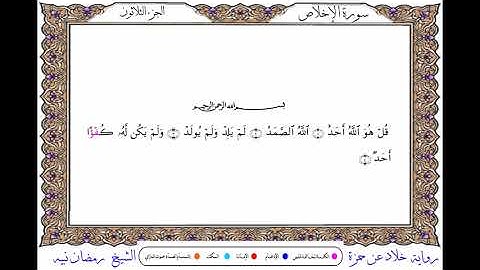 سورة الإخلاص
الجزء الثلاثون
بسم الله الرحمن الرحيم
قُلْ هُوَ ٱللَّهُ أَحَدٌ ۝ ٱللَّهُ ٱلصَّمَدُ ۝ لَمْ يَلِدْ وَلَمْ يُولَدْ ۝ وَلَمْ يَكُن لَّهُۥ كُفْؤًا
أَحَدٌ ۝
رواية خلاد عن حمزة
الشيخ رمضان نبيه